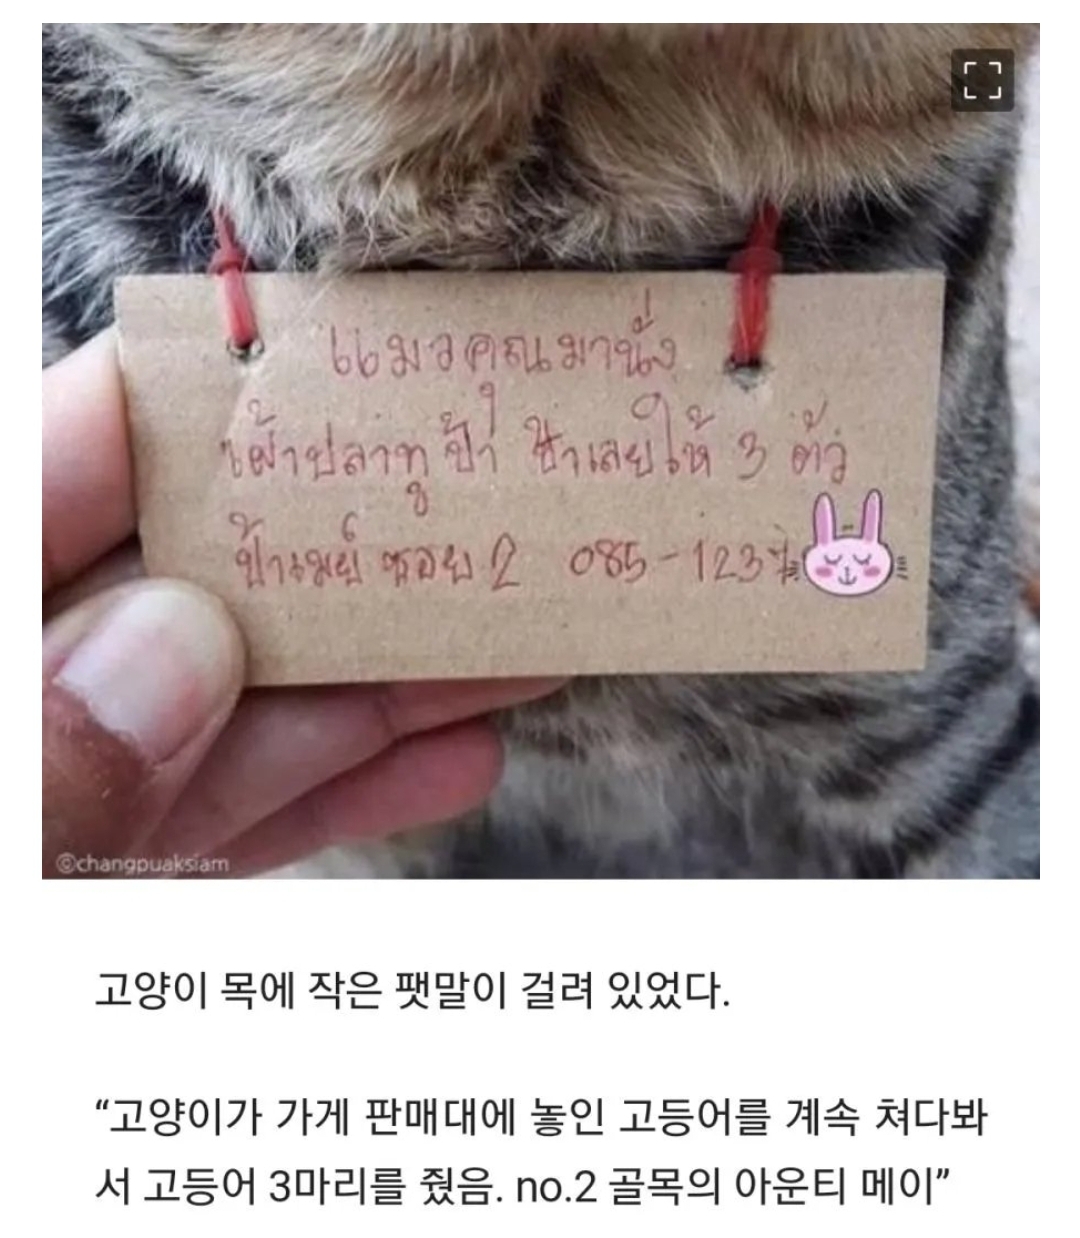 แมวคุณมานั่ง
เฝ้าปลาทูป้า ป้าเลยให้ 3 ตัว
ป้าเมย์ ซอย 2 085-1237
©changpuaksiam
고양이 목에 작은 팻말이 걸려 있었다.
“고양이가 가게 판매대에 놓인 고등어를 계속 쳐다봐
서 고등어 3마리를 줬음. no.2 골목의 아운티 메이”